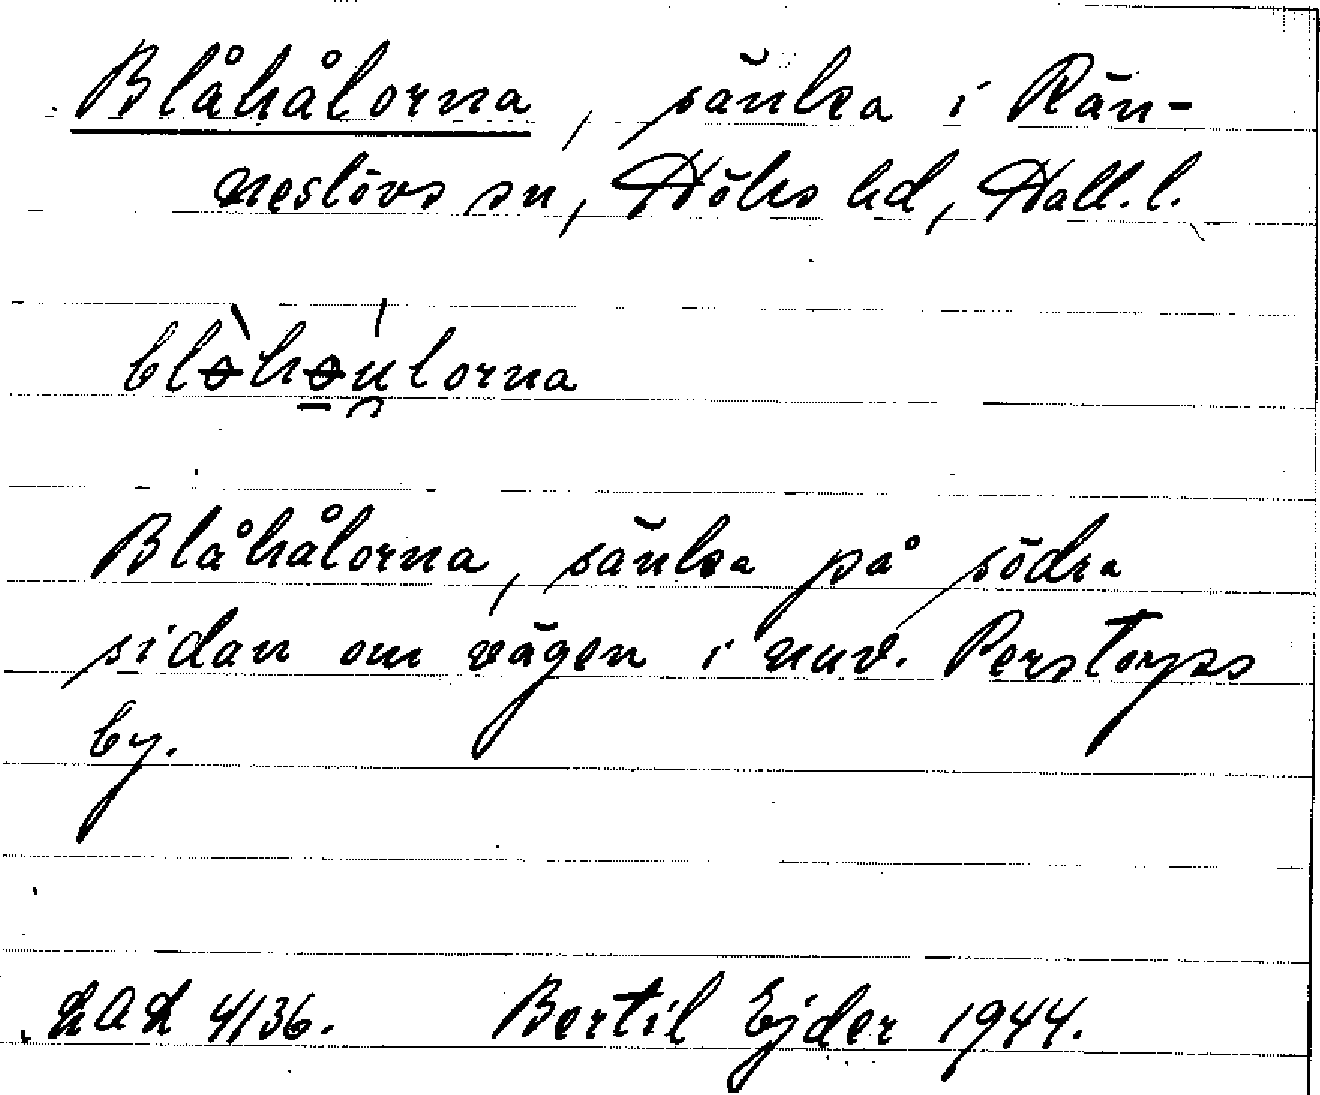 Blåhålorna, sänka i Rän-
neslövs sn, Höks hd, Hall. l.
blɵ̀hɵ̠ú̯lorna
Blåhålorna, sänka på södra
sidan om vägen i nuv. Perstorps
by.
LAL 4/36. Bertil Ejder 1944.